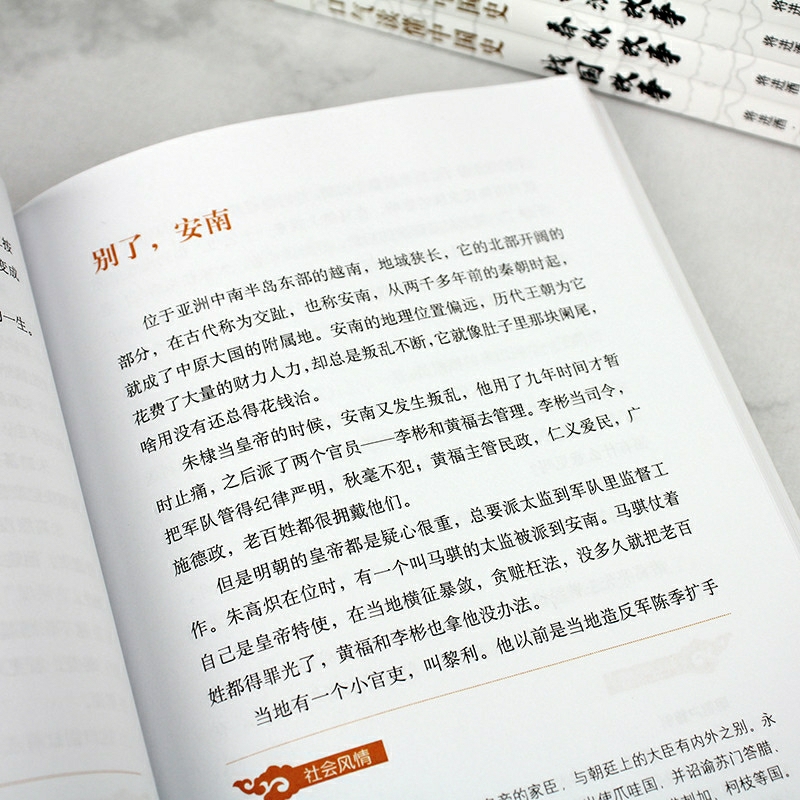 中国史
故事
口气读懂中国史
春秋故事
战国故事
将进酒
将进酒
将进酒
按
变成
一生。
别了，安南
位于亚洲中南半岛东部的越南，地域狭长，它的北部开阔的
部分，在古代称为交趾，也称安南，从两千多年前的秦朝时起，
就成了中原大国的附属地。安南的地理位置偏远，历代王朝为它
花费了大量的财力人力，却总是叛乱不断，它就像肚子里那块阑尾，
啥用没有还总得花钱治。
朱棣当皇帝的时候，安南又发生叛乱，他用了九年时间才暂
时止痛，之后派了两个官员——李彬和黄福去管理。李彬当司令，
把军队管得纪律严明，秋毫不犯；黄福主管民政，仁义爱民，广
施德政，老百姓都很拥戴他们。
但是明朝的皇帝都是疑心很重，总要派太监到军队里监督工
作。朱高炽在位时，有一个叫马骐的太监被派到安南。马骐仗着
自己是皇帝特使，在当地横征暴敛，贪赃枉法，没多久就把老百
姓都得罪光了，黄福和李彬也拿他没办法。
当地有一个小官吏，叫黎利。他以前是当地造反军陈季扩手
社会风情
帝的家臣，与朝廷上的大臣有内外之别。永
使爪哇国，并诏谕苏门答腊、
加，柯枝等国。